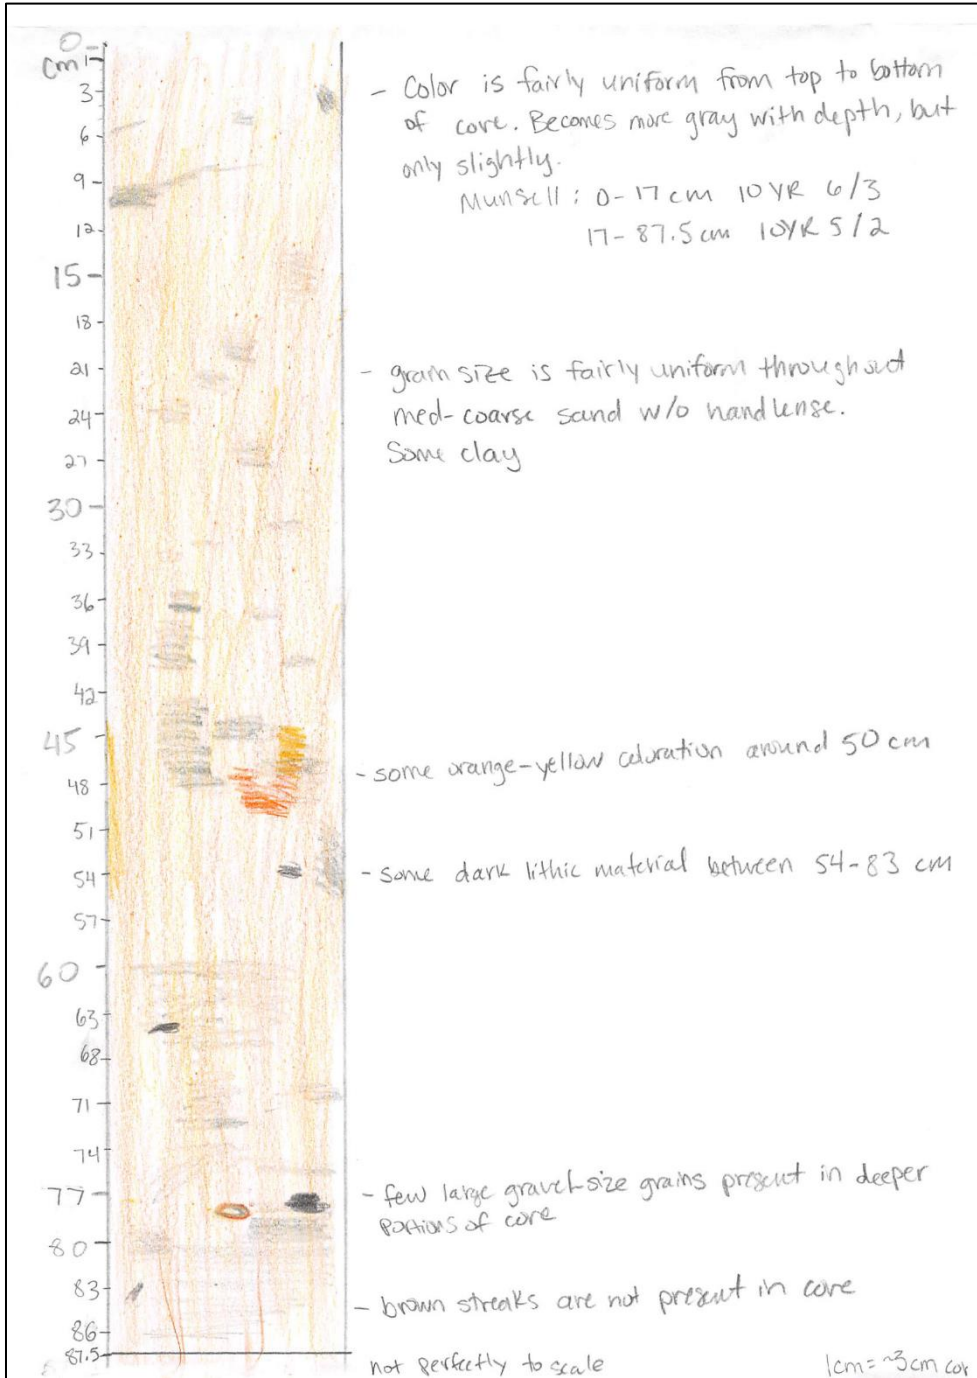 0
cm 1
3
6
9
12
15
18
21
24
27
30
33
36
39
42
45
48
51
54
57
60
63
68
71
74
77
80
83
86
87.5
- Color is fairly uniform from top to bottom
of core. Becomes more gray with depth, but
only slightly.
Munsell: 0-17 cm 10 YR 6/3
17-87.5 cm 10YR 5/2
- grain size is fairly uniform throughout
med-coarse sand w/o handlense.
Some clay
- some orange-yellow coloration around 50 cm
- some dark lithic material between 54-83 cm
- few large gravel-size grains present in deeper
portions of core
- brown streaks are not present in core
not perfectly to scale
1cm = ~3cm cor